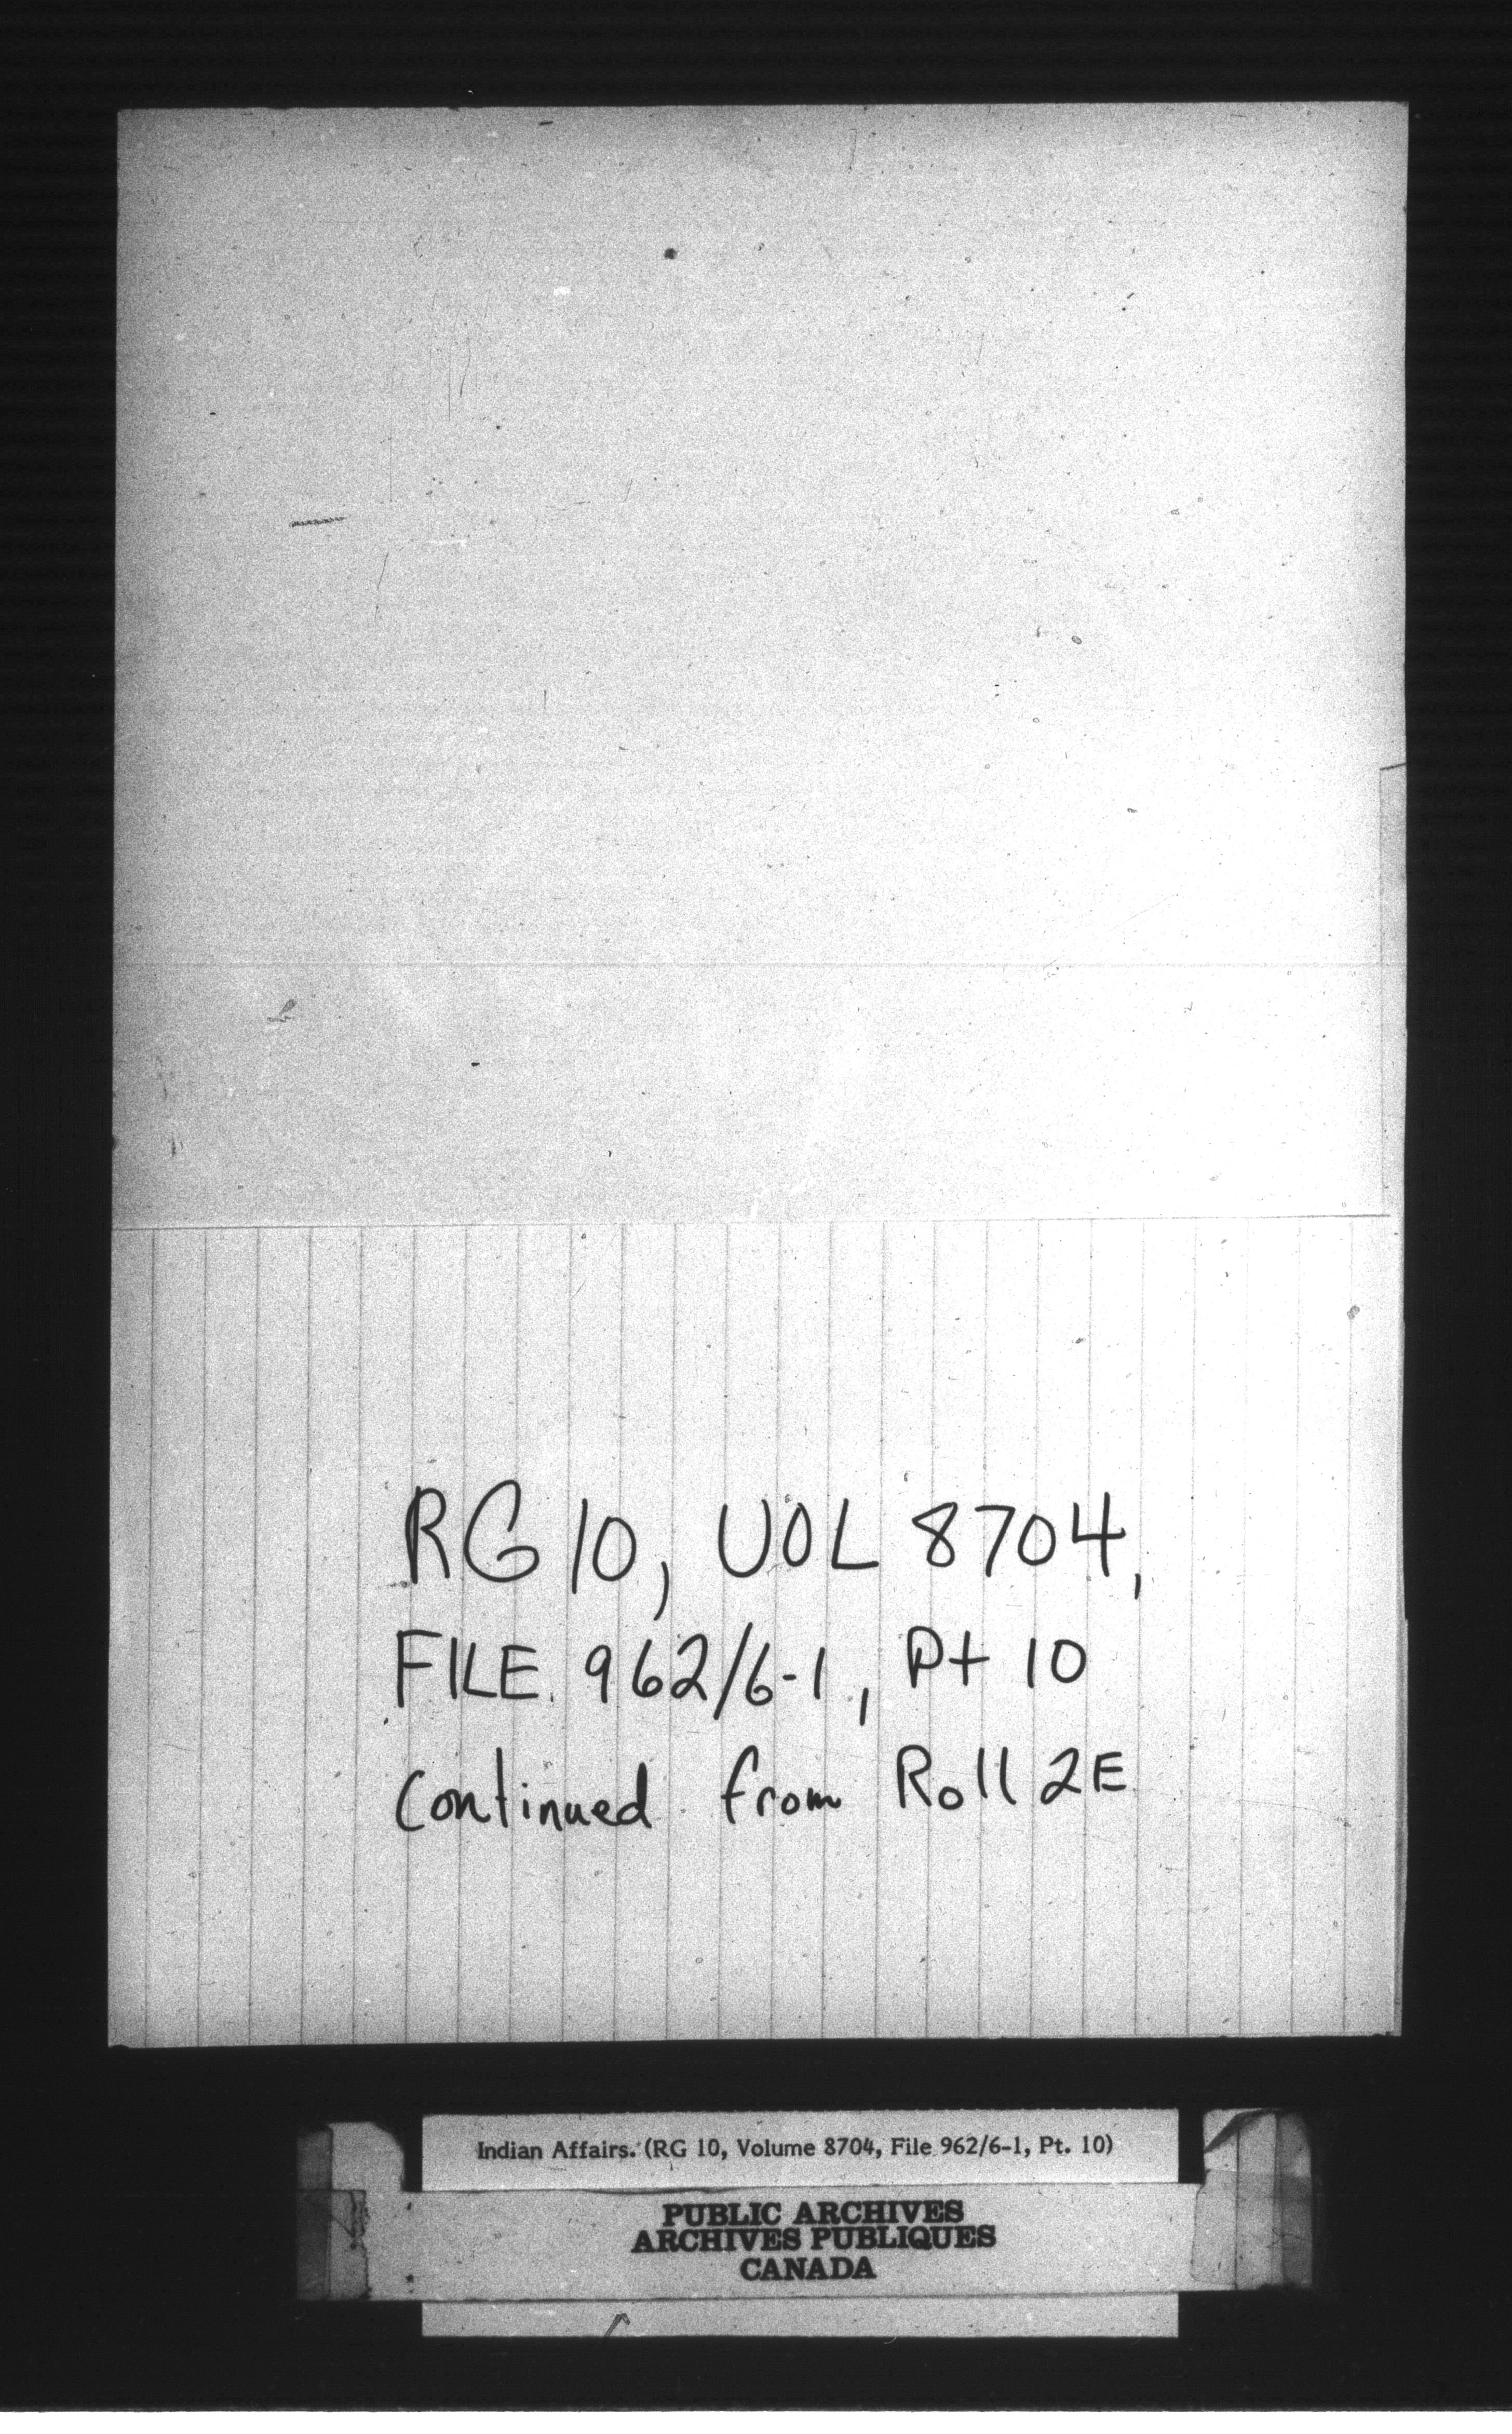 RG 10, VOL 8704,
FILE 962/6-1, Pt 10
Continued from Roll 2E
Indian Affairs. (RG 10, Volume 8704, File 962/6-1, Pt. 10)
PUBLIC ARCHIVES
ARCHIVES PUBLIQUES
CANADA